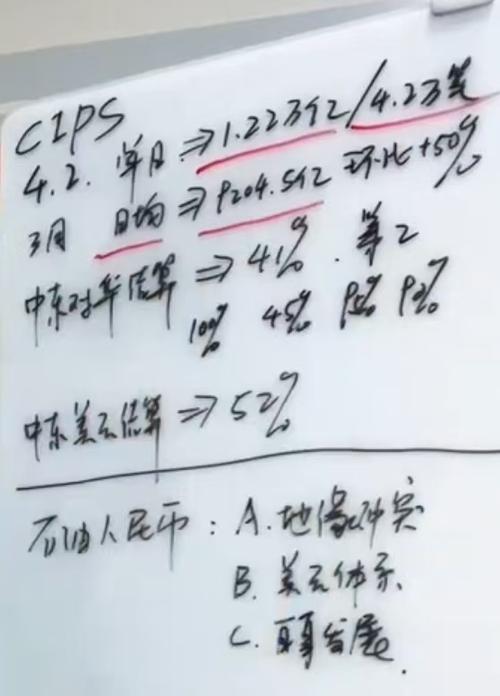 CIPS
4.2. 单日 ⇒ 1.22万亿/4.23万笔
3月 日均 ⇒ 9204.5亿 环比+50%
中东对华结算 ⇒ 41%. 第2
100% 45% 95% 90%
中东美元结算 ⇒ 52%
石油人民币: A. 地缘冲突
B. 美元体系
C. 发展